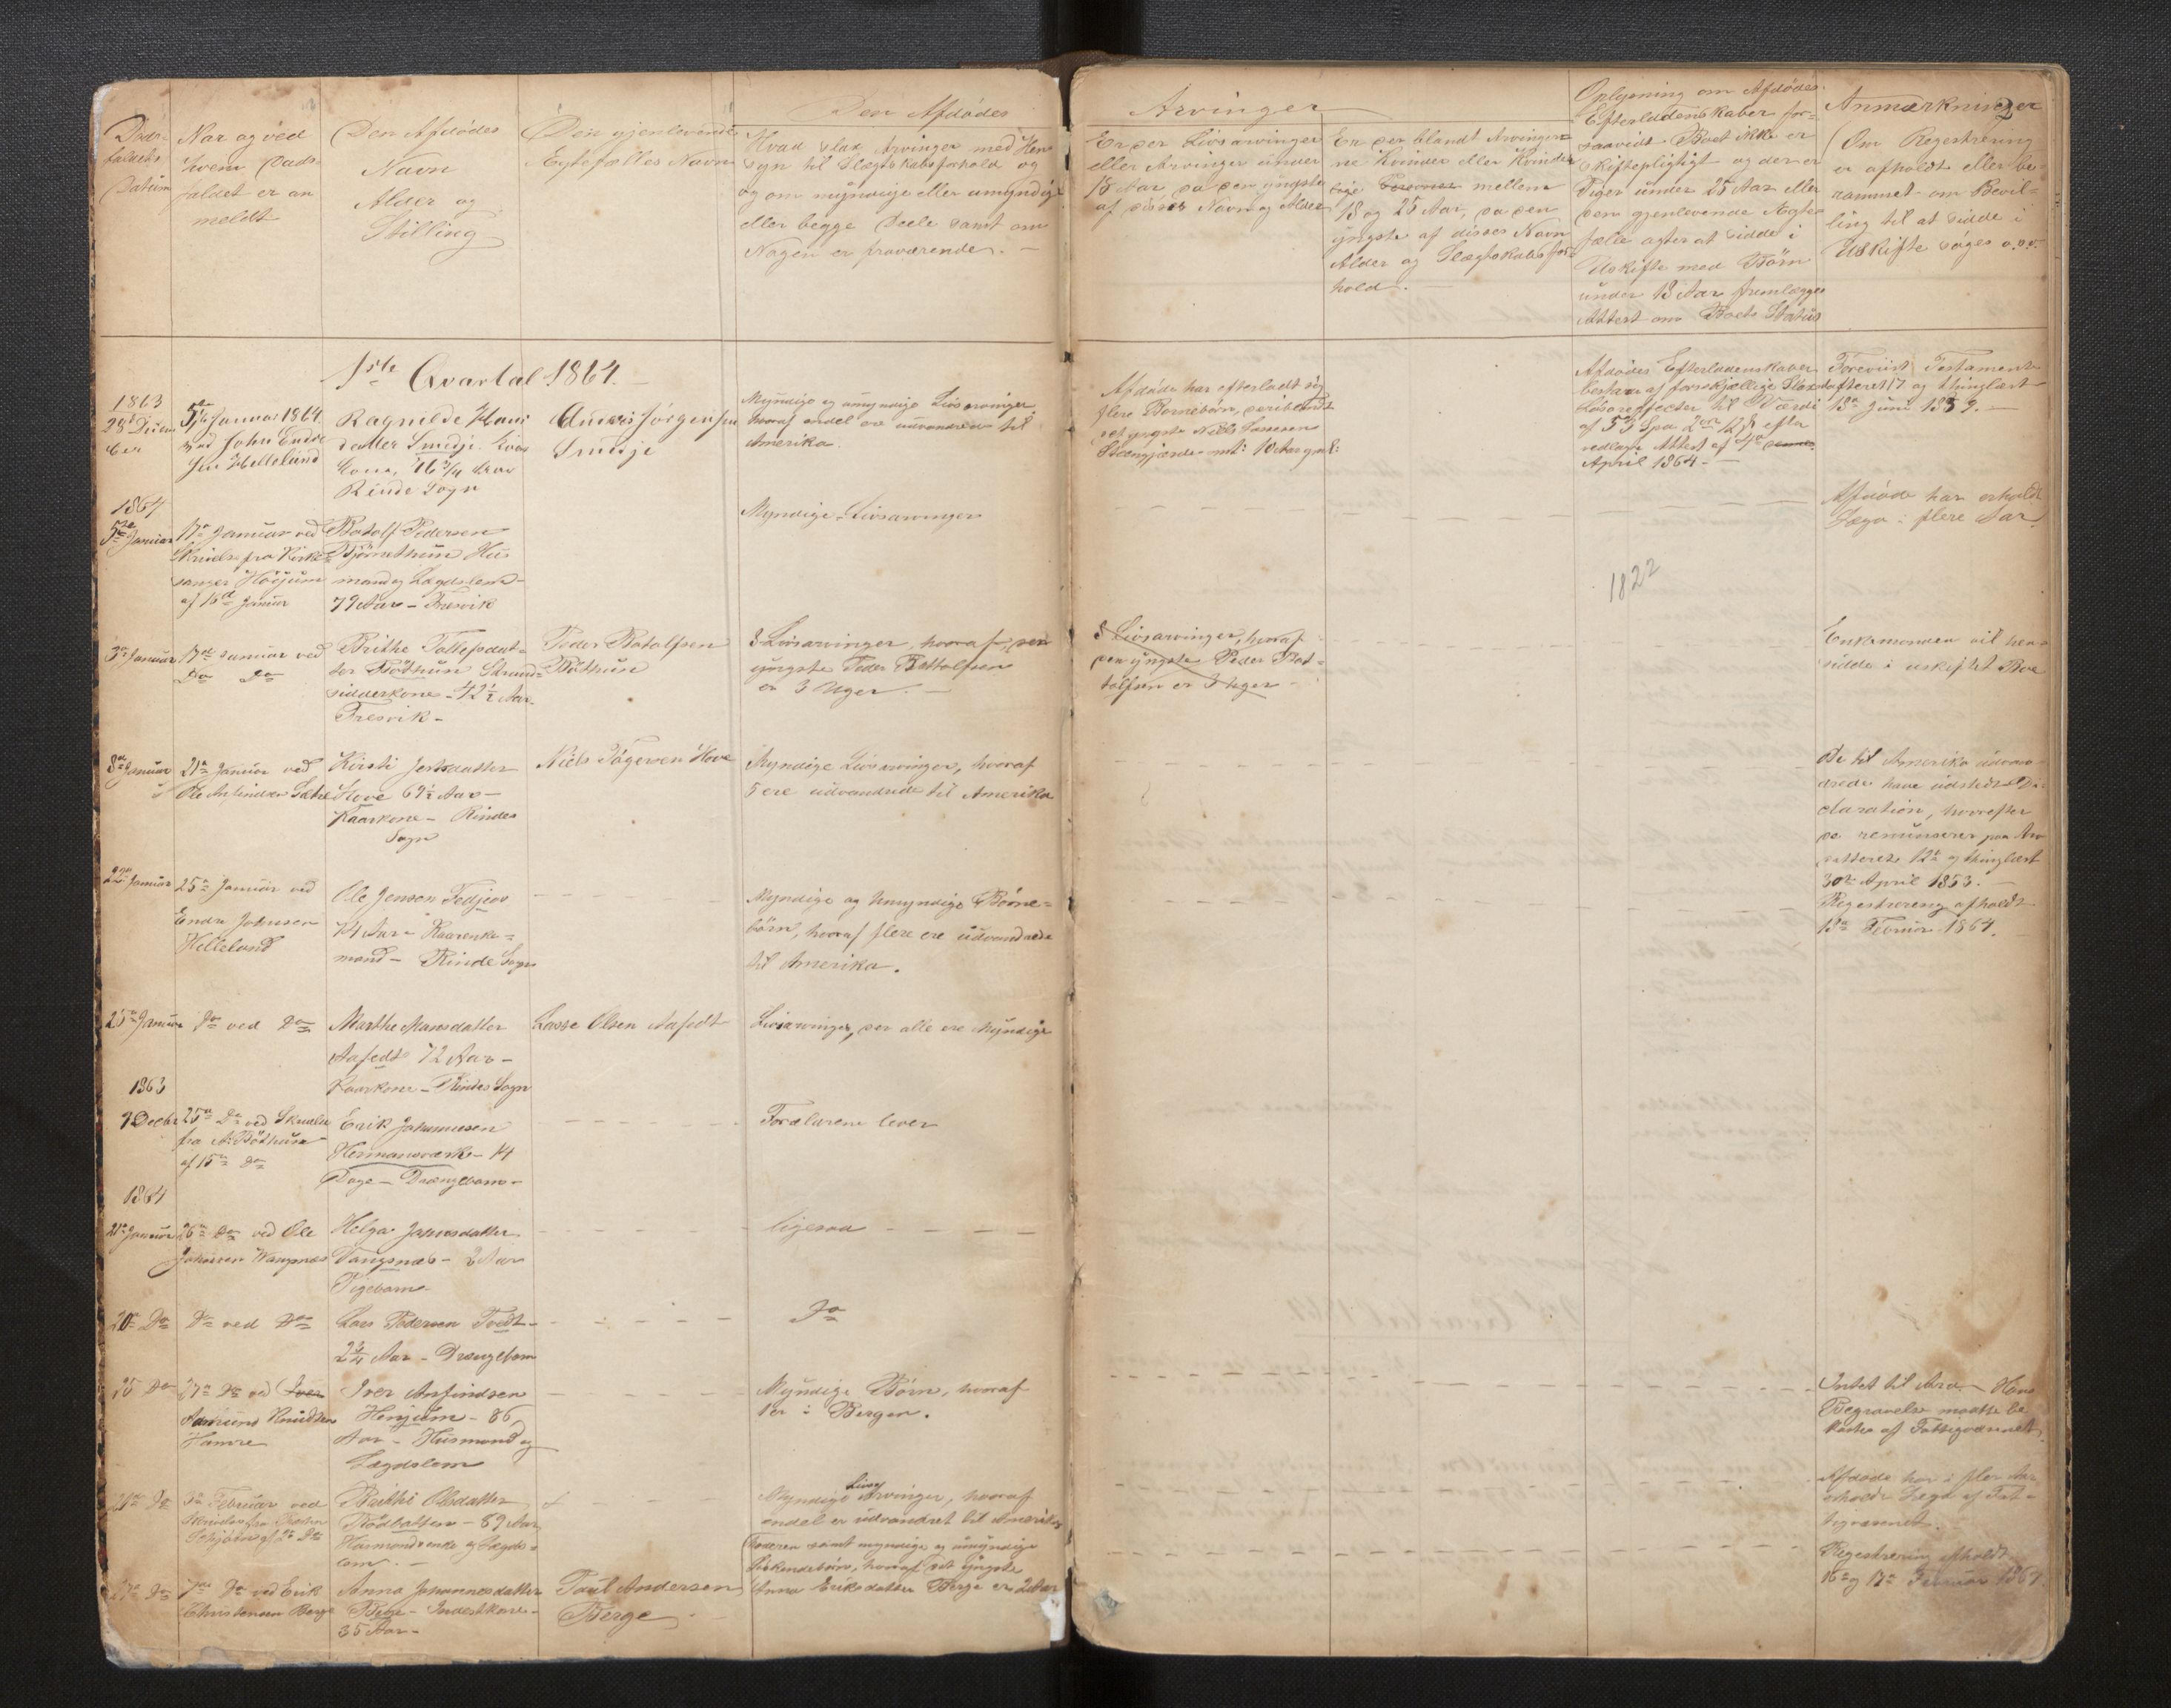 Døds-
faldets
Datum
Nar og ved
hvem Døds-
faldet er an
meldt
Den Afdødes
Navn
Alder og
Stilling
Den gjenlevende
Egtefælles Navn
Den Afdødes
Hvad Slax Arvinger med Hen
syn til Slægtskabsforhold og
og om myndige eller umyndige
eller begge Deele samt om
Nogen er fraværende. -
Arvinger
Er der Livsarvinger
eller Arvinger under
18 Aar, da den yngste
af disses Navn og Alder
Er der blandt Arvinger-
ne Kvinder eller
Personer mellem
18 og 25 Aar, da den
yngste af disses Navn
Alder og Slægtskabsfor-
hold. -
Oplysning om Afdødes
Efterladenskaber for-
saavidt Boet ikke er
skiftepligtigt og der er
under 25 Aar eller
den gjenlevende Ægte
fælle agter at sidde i
Uskifte med Börn
under 18 Aar fremlægges
Attest om Boets Status
Anmærkninger
2
(Om Registrering
er afholdt eller be-
rammet om Bevil-
ling til at sidde i
Uskifte søges o.s.v.
1ste Qvartal 1864. -
1863
28de Decem
ber
5te Januar 1864
ved John Endre
sen Helleland
Ragnilde Hans
datter Smidje.
Kone, 76 3/4 Aar
Rinde Sogn
Anders Jörgensen
Smidje
Myndige og umyndige Livsarvinger
hvoraf endel er udvandrede til
Amerika.
Afdøde har efterladt sig
flere Børnebörn, deriblandt
det yngste Niels Lassesen
10 Aar gml:
Afdødes Efterladenskaber
bestaar af forskjellige Slax
Løsøreeffecter til Værdi
af 53 Spd 2 12 β efter
vedlagte Attest af 4de
April 1864 -
Foreviist Testamente
dateret 17 og thinglæst
18de Juni 1859. -
1864
5te Januar
17de Januar ved
Skrivelse fra Kirke-
sanger Höijum
af 16d Januar
Botolf Pedersen
Björnethun Hus
mand og Lægdslem-
79 Aar - Fresvik
Myndige Livsarvinger
Afdøde har erholdt
Lægd i flere Aar.
1822
3de Januar
17de Januar ved
Do Do
Brithe Tollefsdat-
ter Böthun Strand-
sidderkone - 42 1/2 Aar
Fresvik -
Peder Botolfsen
Böthun
8 Livsarvinger, hvoraf den
yngste Peder Bottolfsen
er 3 Uger. -
8 Livsarvinger, hvoraf
den yngste Peder Bot-
tolfsen er 3 Uger -
Enkemanden vil hen
sidde i uskiftet Boe
8de Januar
21de Januar ved
Ole Anfindsen Sæbø
Kirsti Jensdatter
Hove 67 1/2 Aar -
Kaarkone - Rindes
Sogn
Niels Tögersen Hove
Myndige Livsarvinger, hvoraf
5 ere udvandrede til Amerika
De til Amerika udvan-
drede have udstedt De-
claration, hvorefter
de renuncerer paa Arv
datteret 12te og thinglæst
30te April 1853. -
22de Januar
25de Januar ved
Endre Johnsen
Helleland
Ole Jensen Fedjeos
74 Aar - Kaarenke-
mand - Rinde Sogn
Myndige og Umyndige Børne-
börn, hvoraf flere ere udvandrede
til Amerika.
Registrering afholdt
15de Februar 1864.
25de Januar
Do ved Do
Marthe Hansdatter
Aafedt 72 Aar -
Kaarkone - Rindes Sogn
Lasse Olsen Aafedt
Livsarvinger, der alle ere Myndige
1863
9 Decbr
25de Do ved Skrivelse
fra A. Böthun
af 15de Do
Erik Johannesen
Hermansværk - 14
Dage - Drængebarn -
Forældrene lever
1864
21de Januar
26de Do ved Ole
Johansen Wangsnæs
Helga Johansdatter
Vangsnæs - 2 Aar
Pigebarn -
ligesaa
20de Do
Do ved Do
Lars Pedersen Tvedt -
2 3/4 Aar - Drængebarn
Do
25 Do
27de Do ved Iver
Aamund Knudsen
Hamre
Iver Anfindsen
Henjum - 86
Aar - Husmand og
Lægdslem
Myndige Börn, hvoraf
1 er i Bergen.
Intet til Arv - Hans
Begravelse maatte be
kostes af Fattigvæsenet.
21de Do
3de Februar ved
Brithi Olsdatter
Rödbatten - 89 Aar
Husmandsenke og Lægds-
lem. -
Myndige Livs Arvinger, hvoraf
endel er udvandret til Amerika
Afdøde har i fler Aar
erholdt Lægd af Fat-
tigvæsenet.
27de Do
7de Do ved Erik
Christensen Berge
Anna Johannesdatter
Berge - Inderstkone -
35 Aar -
Poul Andersen
Berge
Faderen samt myndige og umyndige
Søskendebörn, hvoraf det yngste
Anna Eriksdatter Berge er 2 Aar
Registrering afholdt
16de og 17de Februar 1864.